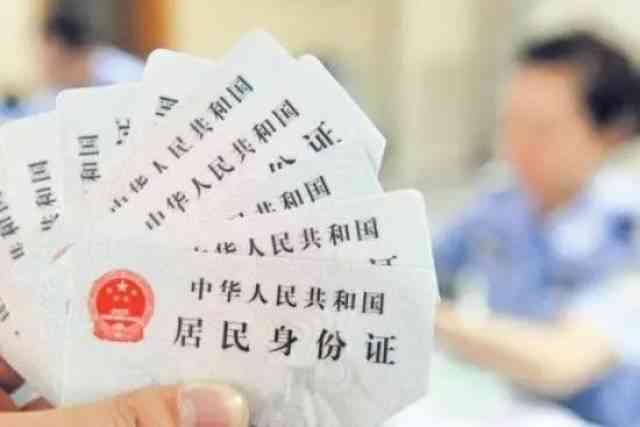 中华人民共和国
居民身份证
中华人民共和国
证
中华人民共和国
证
中华人民共和国
份证
共和国
共和国
民共和国